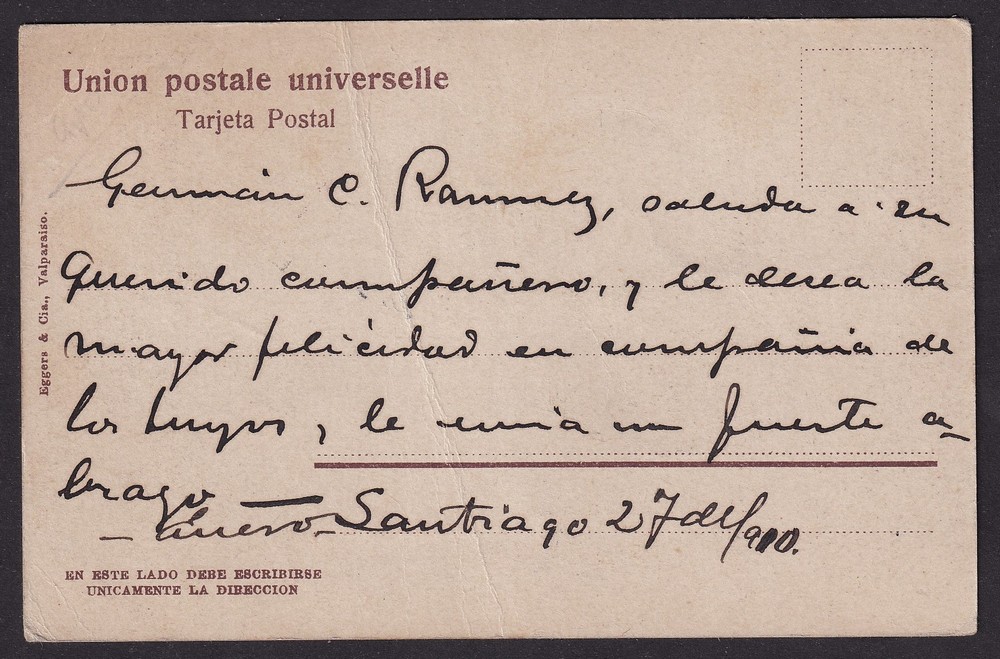 Union postale universelle
Tarjeta Postal
German C. Ramirez, saluda a su
querido compañero, y le desea la
mayor felicidad en compañia de
los tuyos, le envia un fuerte a-
brazo —
– Enero – Santiago 27 de 1910.
EN ESTE LADO DEBE ESCRIBIRSE
UNICAMENTE LA DIRECCION
Eggers & Cia., Valparaiso.